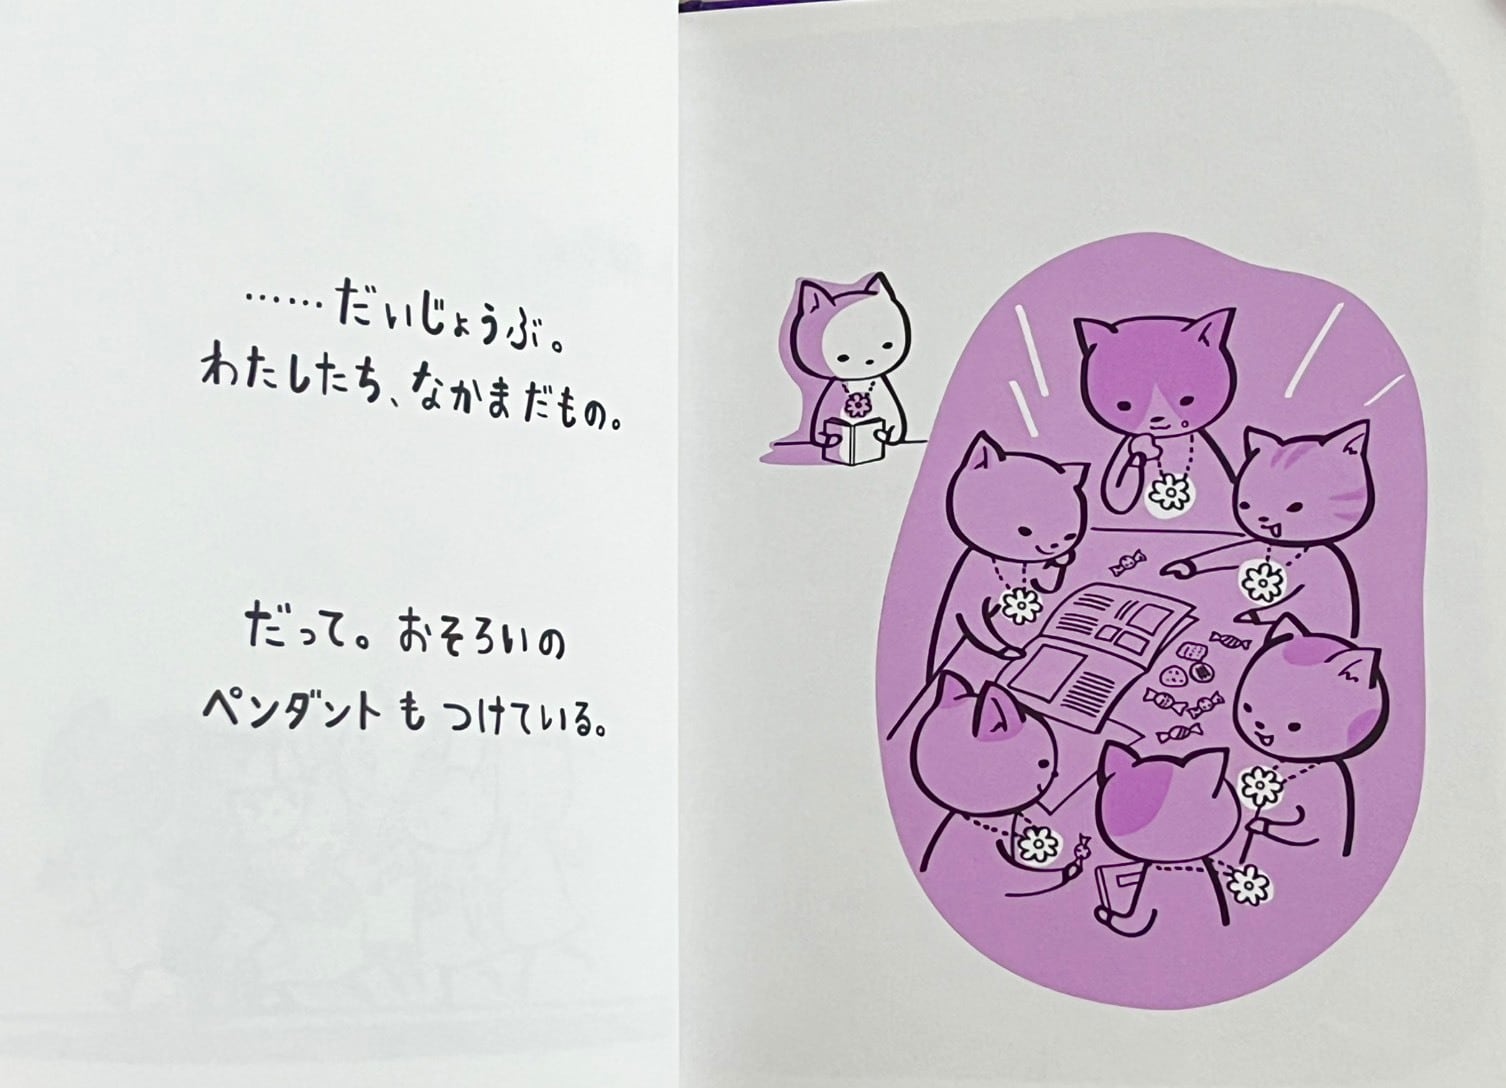 ……だいじょうぶ。
わたしたち、なかまだもの。
だって。おそろいの
ペンダントもつけている。